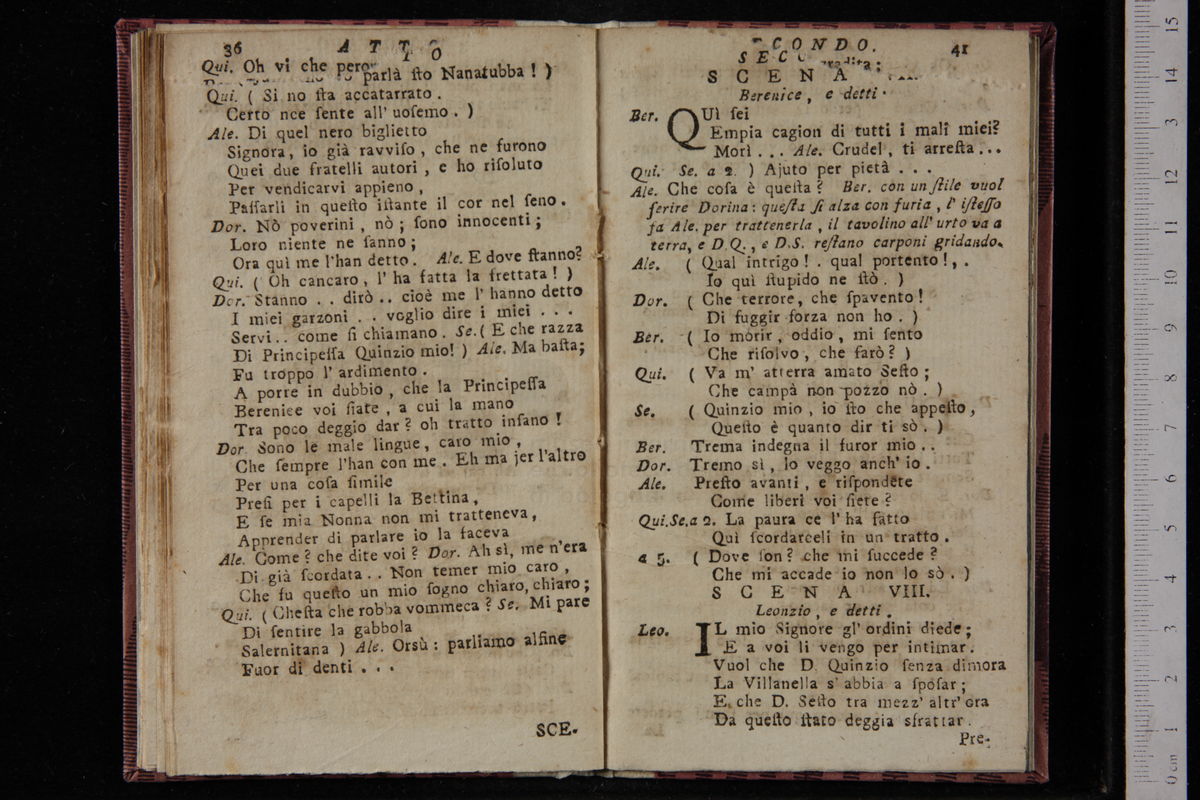 36 A T T O
Qui. Oh vi che pero
parlà ſto Nanatubba ! )
Qui. ( Si no ſta accatarrato .
Certo nce ſente all' uoſemo . )
Ale. Di quel nero biglietto
Signora, io già ravviſo , che ne furono
Quei due fratelli autori , e ho riſoluto
Per vendicarvi appieno ,
Paſſarli in queſto iſtante il cor nel ſeno .
Dor. Nò poverini , nò ; ſono innocenti ;
Loro niente ne ſanno ;
Ora quì me l'han detto . Ale. E dove ſtanno?
Qui. ( Oh cancaro , l' ha fatta la frettata ! )
Dor. Stanno . . dirò . . cioè me l' hanno detto
I miei garzoni . . voglio dire i miei . . .
Servi . . come ſi chiamano . Se. ( E che razza
Di Principeſſa Quinzio mio! ) Ale. Ma baſta;
Fu troppo l' ardimento .
A porre in dubbio , che la Principeſſa
Berenice voi ſiate , a cui la mano
Tra poco deggio dar ? oh tratto inſano !
Dor Sono le male lingue , caro mio ,
Che ſempre l'han con me . Eh ma jer l'altro
Per una coſa ſimile
Preſi per i capelli la Bettina ,
E ſe mia Nonna non mi tratteneva ,
Apprender di parlare io la faceva
Ale. Come ? che dite voi ? Dor. Ah sì, me n'era
Di già ſcordata . . Non temer mio caro ,
Che fu queſto un mio ſogno chiaro, chiaro ;
Qui. ( Cheſta che robba vommeca ? Se. Mi pare
Di ſentire la gabbola
Salernitana ) Ale. Orsù : parliamo alfine
Fuor di denti . . .
SCE-
SECONDO. 41
S C E N A
Berenice , e detti .
Ber. QUì ſei
Empia cagion di tutti i mali miei?
Morì . . . Ale. Crudel , ti arreſta . . .
Qui. Se. a 2. ) Ajuto per pietà . . .
Ale. Che coſa è queſta ? Ber. con un ſtile vuol
ferire Dorina : queſta ſi alza con furia , l' iſteſſo
fa Ale. per trattenerla , il tavolino all' urto va a
terra, e D.Q. , e D.S. reſtano carponi gridando.
Ale. ( Qual intrigo ! . qual portento ! , .
Io quì ſtupido ne ſtò . )
Dor. ( Che terrore, che ſpavento !
Di fuggir forza non ho . )
Ber. ( Io morir , oddio , mi ſento
Che riſolvo , che farò ? )
Qui. ( Va m' atterra amato Seſto ;
Che campà non pozzo nò . )
Se. ( Quinzio mio , io ſto che appeſto,
Queſto è quanto dir ti sò . )
Ber. Trema indegna il furor mio . .
Dor. Tremo sì , lo veggo anch' io .
Ale. Preſto avanti , e riſpondete
Come liberi voi ſiete ?
Qui.Se.a 2. La paura ce l' ha fatto
Quì ſcordarceli in un tratto .
a 5. ( Dove ſon ? che mi ſuccede ?
Che mi accade io non lo sò . )
S C E N A VIII.
Leonzio , e detti .
Leo. IL mio Signore gl' ordini diede ;
E a voi li vengo per intimar.
Vuol che D. Quinzio ſenza dimora
La Villanella s' abbia a ſpoſar ;
E che D. Seſto tra mezz' altr' ora
Da queſto ſtato deggia sfrattar .
Pre-